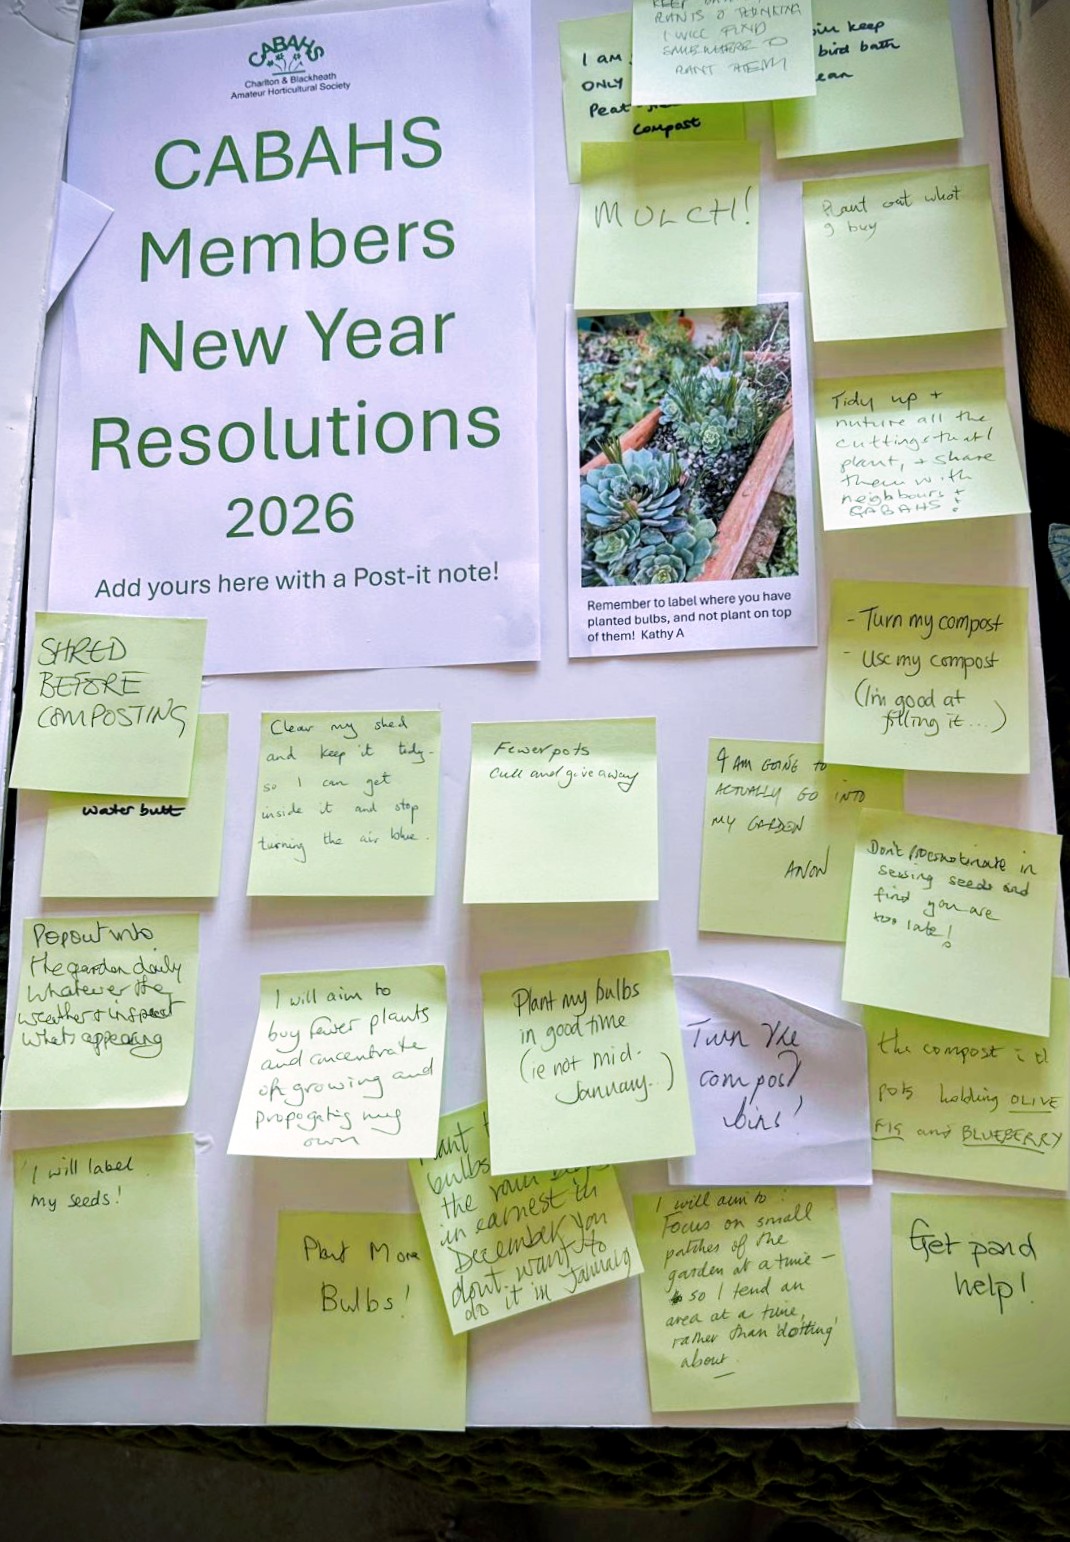 CABAHS
Charlton & Blackheath
Amateur Horticultural Society
CABAHS
Members
New Year
Resolutions
2026
Add yours here with a Post-it note!
PLANTS & THINKING
I WILL FIND
SOMEWHERE TO
PLANT THEM
I AM
ONLY
Peat
compost
keep
bird bath
MULCH!
Plant out what
I buy
Remember to label where you have
planted bulbs, and not plant on top
of them! Kathy A
Tidy up +
nuture all the
cuttings that I
plant, + share
them with
neighbours +
CABAHS!
- Turn my compost
- Use my compost
(I'm good at
filling it...)
SHRED
BEFORE
COMPOSTING
water butt
Clear my shed
and keep it tidy -
so I can get
inside it and stop
turning the air blue.
Fewer pots
cull and give away
I AM GOING TO
ACTUALLY GO INTO
MY GARDEN
ANON
Don't Procrastinate in
sewing seeds and
find you are
too late!
Pop out into
the garden daily
whatever the
weather & inspect
whats appearing
I will aim to
buy fewer plants
and concentrate
on growing and
propogating my
own
Plant my bulbs
in good time
(ie not mid-
January...)
Turn the
compost
bins!
the compost in
pots holding OLIVE
FIG and BLUEBERRY
I will label
my seeds!
Plant More
Bulbs!
bulbs
the rain
in earnest in
December. You
dont want to
do it in January
I will aim to:
Focus on small
patches of the
garden at a time -
so I tend an
area at a time,
rather than 'dotting'
about.
Get pond
help!